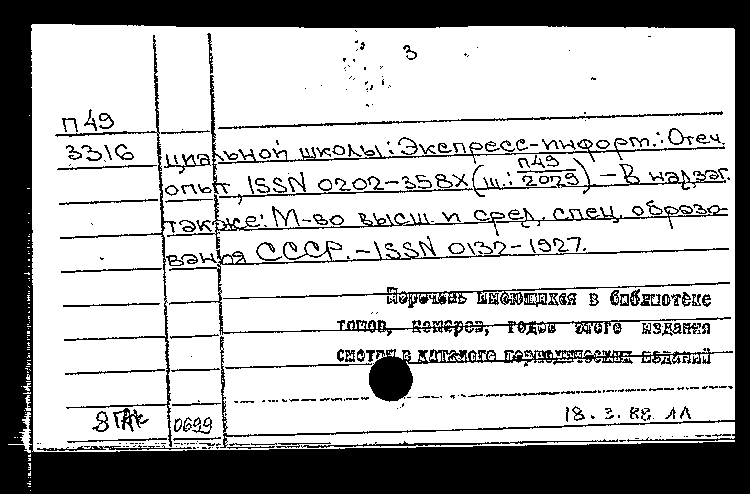 3
П49
3316 циальной школы: Экспресс-информ.: Отеч.
опыт, ISSN 0202-358X (ш.: П49/2029). – В надзаг.
также: М-во высш и сред. спец. образо-
вания СССР. – ISSN 0132-1927.
Перечень имеющихся в библиотеке
томов, номеров, годов этого издания
смотри в каталоге периодических изданий
0699 18.3.88